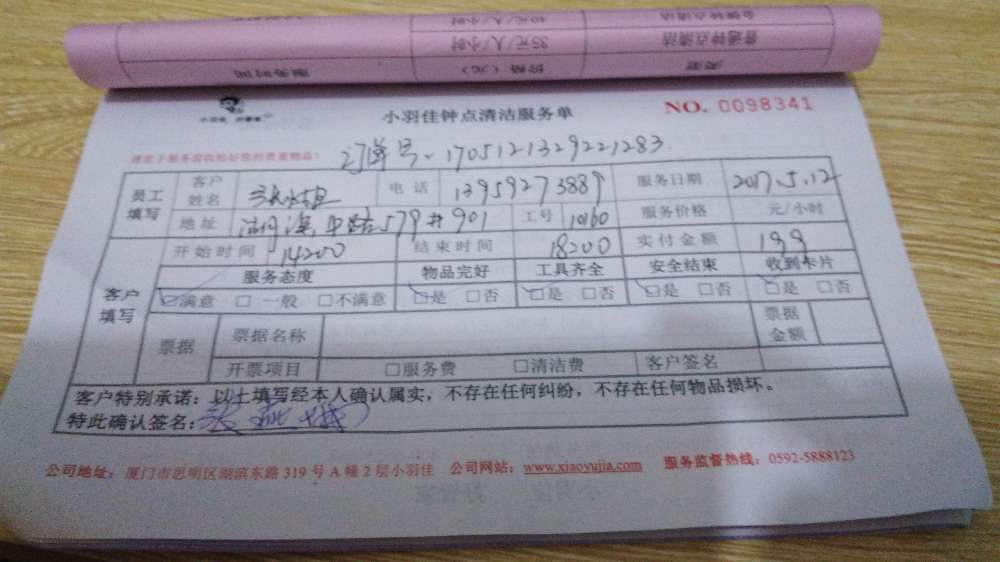 40元/人/小时
普通钟点清洁 35元/人/小时
类型 价格（元） 服务时间
小羽佳钟点清洁服务单
NO. 0098341
请您于服务前收拾好您的贵重物品！
订单号: 1705121329221283
员工填写 客户姓名 张小姐 电话 13959273889 服务日期 2017.5.12
地址 579# 901 工号 10160 服务价格 元/小时
开始时间 14:00 结束时间 18:00 实付金额 199
客户填写 服务态度 物品完好 工具齐全 安全结束 收到卡片
☑满意 □一般 □不满意 ☑是 □否 ☑是 □否 ☑是 □否 ☑是 □否
票据 票据名称 票据金额
开票项目 □服务费 □清洁费 客户签名
客户特别承诺：以上填写经本人确认属实，不存在任何纠纷，不存在任何物品损坏。
特此确认签名：
公司地址：厦门市思明区湖滨东路 319 号 A 幢 2 层小羽佳 公司网站：www.xiaoyujia.com 服务监督热线：0592-5888123